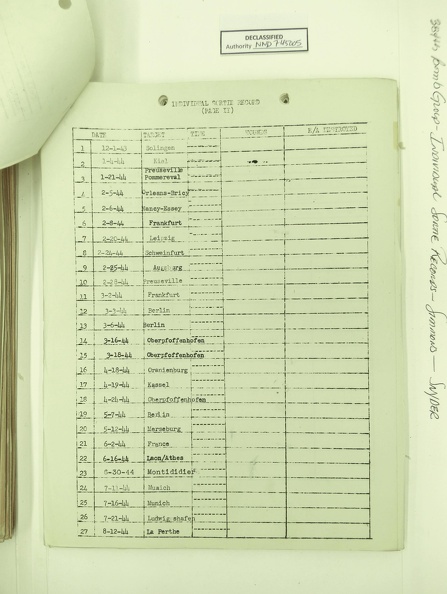 DECLASSIFIED
Authority NND 745005
INDIVIDUAL SORTIE RECORD
(PAGE II)
DATE TARGET TIME BOMBS E/A DESTROYED
1 12-1-43 Solingen
2 1-4-44 Kiel
3 1-21-44 Freuseville Pommereval
4 2-5-44 Orleans-Bricy
5 2-6-44 Nancy-Essey
6 2-8-44 Frankfurt
7 2-20-44 Leipzig
8 2-24-44 Schweinfurt
9 2-25-44 Augsburg
10 2-28-44 Freuseville
11 3-2-44 Frankfurt
12 3-3-44 Berlin
13 3-6-44 Berlin
14 3-16-44 Oberpfoffenhofen
15 3-18-44 Oberpfoffenhofen
16 4-18-44 Oranienburg
17 4-19-44 Kassel
18 4-24-44 Oberpfoffenhofen
19 5-7-44 Berlin
20 5-12-44 Merseburg
21 6-2-44 France
22 6-16-44 Laon/Athes
23 6-30-44 Montididier
24 Munich
25 7-16-44 Munich
26 7-21-44 Ludwigshafen
27 8-12-44 La Perthe
384th Bomb Group - Individual Sortie Records - Simmons - Snyder